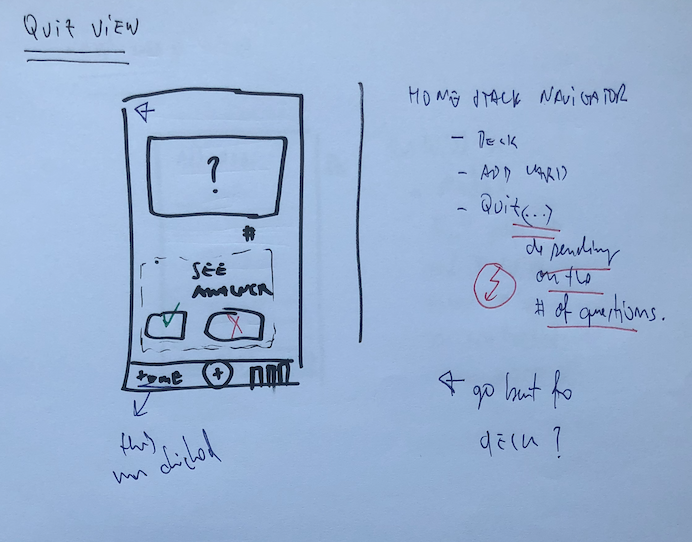 QUIZ VIEW
?
#
SEE
ANSWER
HOME
+
this
clicked
HOME STACK NAVIGATOR
- DECK
- ADD CARD
- QUIZ (...)
depending
on the
# of questions.
go back to
DECK ?